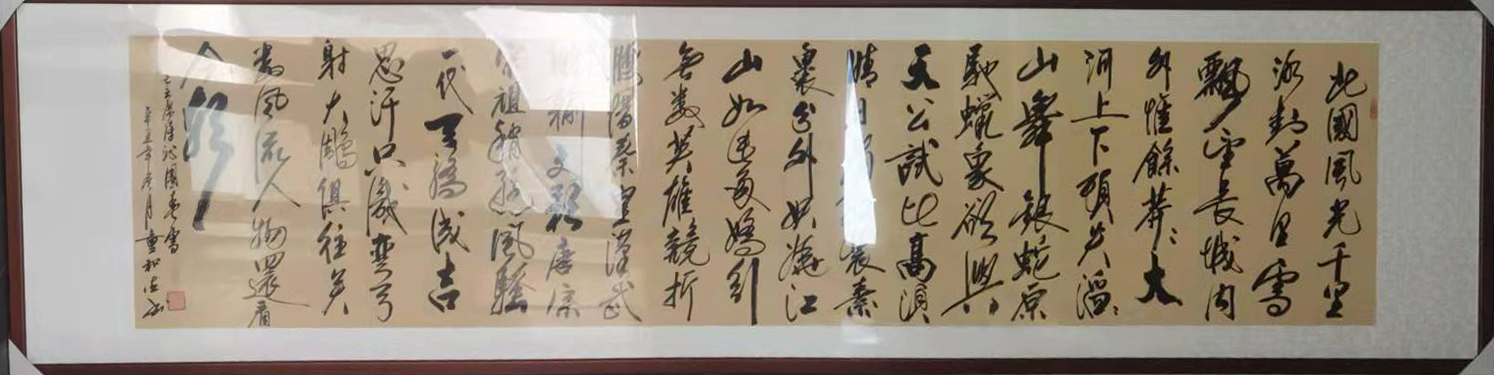 北國風光千里
冰封萬里雪
飄望長城内
外惟餘莽〻大
河上下頓失滔〻
山舞銀蛇原
馳蠟象欲與
天公試比高須
晴日裝素
裹分外妖嬈江
山如此多嬌引
無數英雄競折
腰惜秦皇漢武
略輸文彩唐宗
宋祖稍遜風騷
一代天驕成吉
思汗只識彎弓
射大鵰俱往矣
數風流人物還看
今朝
毛主席詩沁園春雪
辛丑年月